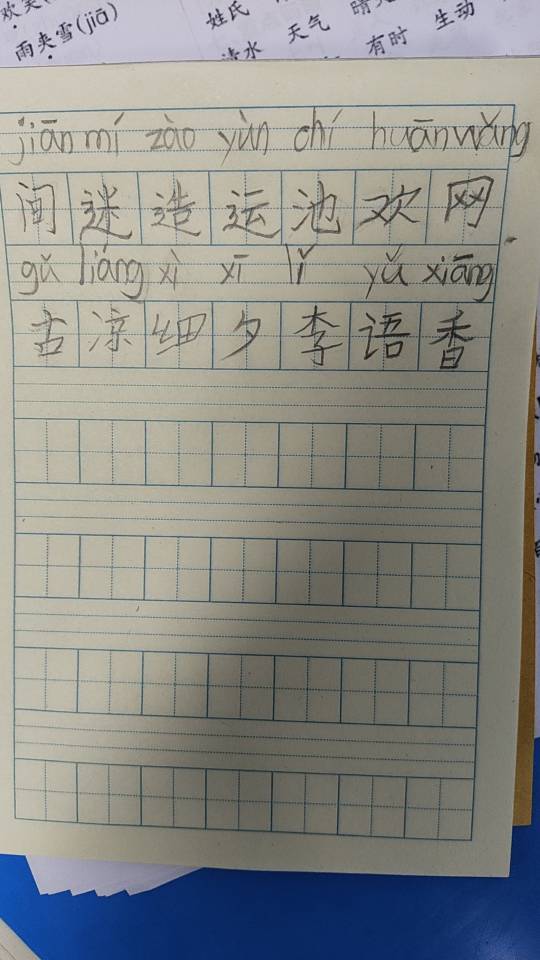 欢
雨夹雪(jiā)
姓氏
清水 天气 晴
有时 生动
jiān mí zào yùn chí huān wǎng
间 迷 造 运 池 欢 网
gǔ liáng xì xī lǐ yǔ xiāng
古 凉 细 夕 李 语 香